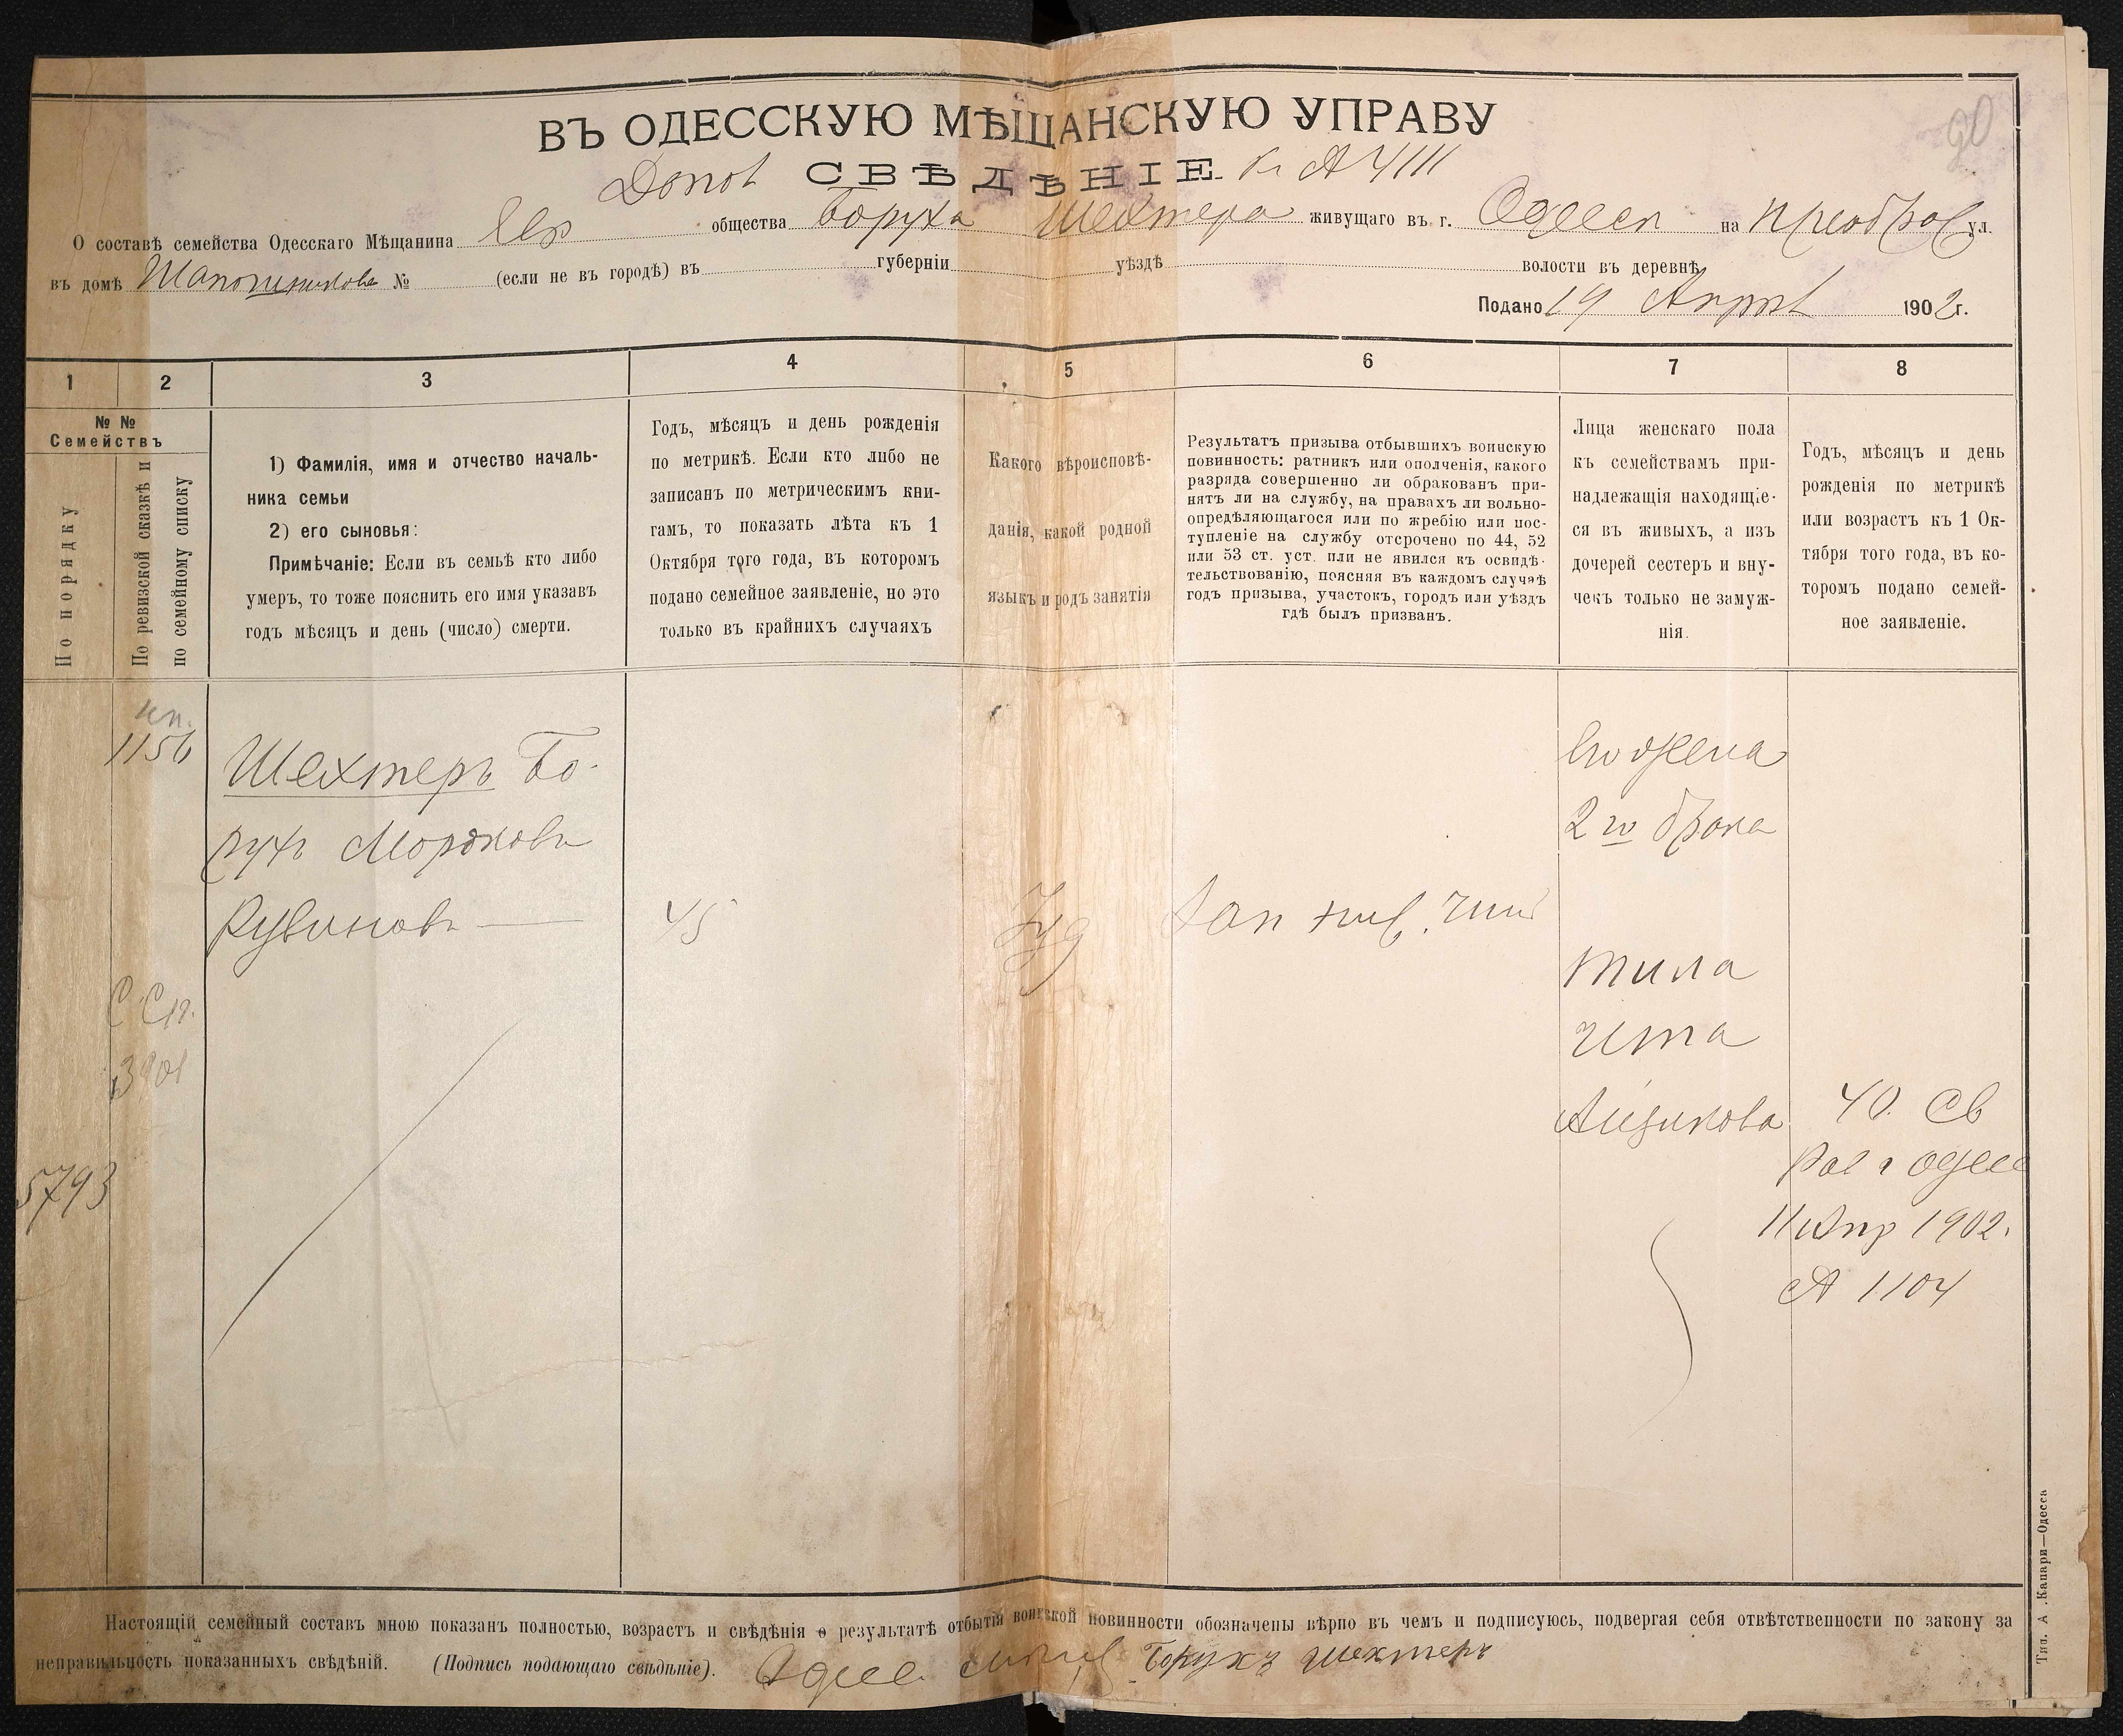 20
ВЪ ОДЕССКУЮ МѢЩАНСКУЮ УПРАВУ
Допол СВѢДѢНІЕ к А 4111
О составѣ семейства Одесскаго Мѣщанина Евр общества Боруха Шехтера живущаго въ г. Одесса на Преображ ул.
въ домѣ Шапошникова № (если не въ городѣ) въ губерніи уѣздѣ волости въ деревнѣ
Подано 19 Апрѣл 1902 г.
1 2 3 4 5 6 7 8
№ №
Семействъ
По порядку
По ревизской сказкѣ и
по семейному списку
1) Фамилія, имя и отчество началь-
ника семьи
2) его сыновья:
Примѣчаніе: Если въ семьѣ кто либо
умеръ, то тоже пояснить его имя указавъ
годъ мѣсяцъ и день (число) смерти.
Годъ, мѣсяцъ и день рожденія
по метрикѣ. Если кто либо не
записанъ по метрическимъ кни-
гамъ, то показать лѣта къ 1
Октября того года, въ которомъ
подано семейное заявленіе, но это
только въ крайнихъ случаяхъ
Какого вѣроисповѣ-
данія, какой родной
языкъ и родъ занятія
Результатъ призыва отбывшихъ воинскую
повинность: ратникъ или ополченія, какого
разряда совершенно ли обракованъ при-
нятъ ли на службу, на правахъ ли вольно-
опредѣляющагося или по жребію или пос-
тупленіе на службу отсрочено по 44, 52
или 53 ст. уст. или не явился къ освидѣ-
тельствованію, поясняя въ каждомъ случаѣ
годъ призыва, участокъ, городъ или уѣздъ
гдѣ былъ призванъ.
Лица женскаго пола
къ семействамъ при-
надлежащія находящіе-
ся въ живыхъ, а изъ
дочерей сестеръ и вну-
чекъ только не замуж-
нія.
Годъ, мѣсяцъ и день
рожденія по метрикѣ
или возрастъ къ 1 Ок-
тября того года, въ ко-
торомъ подано семей-
ное заявленіе.
1156
Шехтеръ Бо-
рухъ Мордковъ
Рувиновъ
45
Іуд
Зап
его жена
2 го брака
Тила
Ита
Айзикова
С Сп.
3901
5793
40. Св
Рав г Одесс
11 Апр 1902.
А 1104
Настоящій семейный составъ мною показанъ полностью, возрастъ и свѣдѣнія о результатѣ отбытія воинской повинности обозначены вѣрно въ чемъ и подписуюсь, подвергая себя отвѣтственности по закону за
неправильность показанныхъ свѣдѣній. (Подпись подающаго свѣдѣніе). Одес. Борухъ Шехтеръ
Тип. А .Капари—Одесса